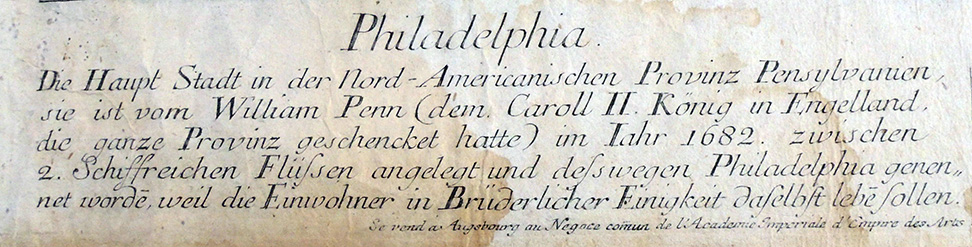 Philadelphia.
Die Haupt Stadt in der Nord-Americanischen Provinz Pensylvanien,
sie ist vom William Penn (dem Caroll II. König in Engelland,
die ganze Provinz geschencket hatte) im Iahr 1682. zwischen
2. Schiffreichen Flüssen angelegt und desswegen Philadelphia genen„
net wordē, weil die Einwohner in Brüderlicher Einigkeit daselbst lebē sollen.
Se vend a Augsbourg au Negoce com̄un de l'Academie Imperiale d'Empire des Arts